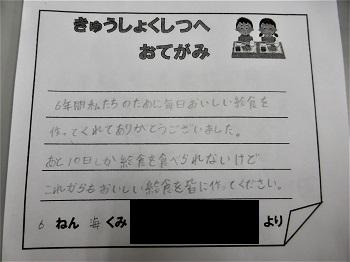 きゅうしょくしつへ
おてがみ
6年間私たちのために毎日おいしい給食を
作ってくれてありがとうございました。
あと10日しか給食を食べられないけど
これからもおいしい給食を皆に作ってください。
6 ねん 海 くみ より